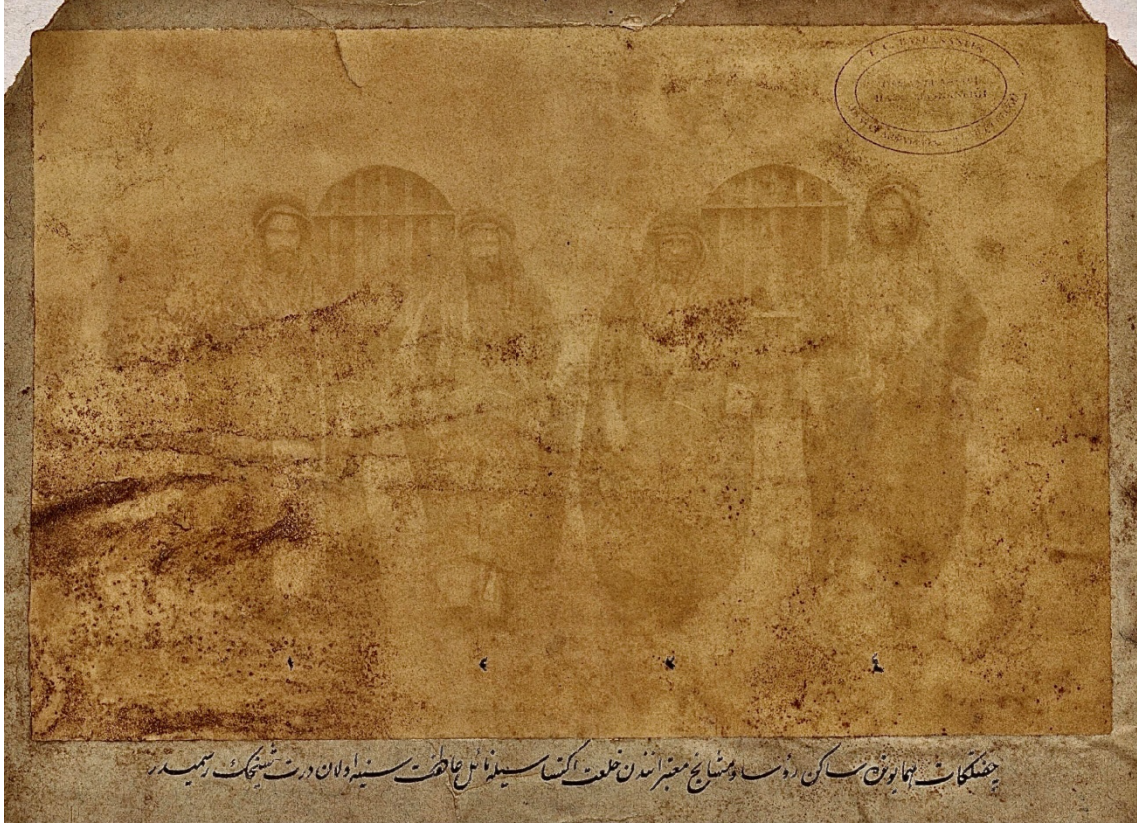 T. C. BAŞBAKANLIK
١
٢
٣
٤
چفتلكات همايونده ساكن رؤسا ومشايخ معتبراندن خلعت اكتساسيله نائل عاطفت سنيه اولان درت شيخك رسميدر